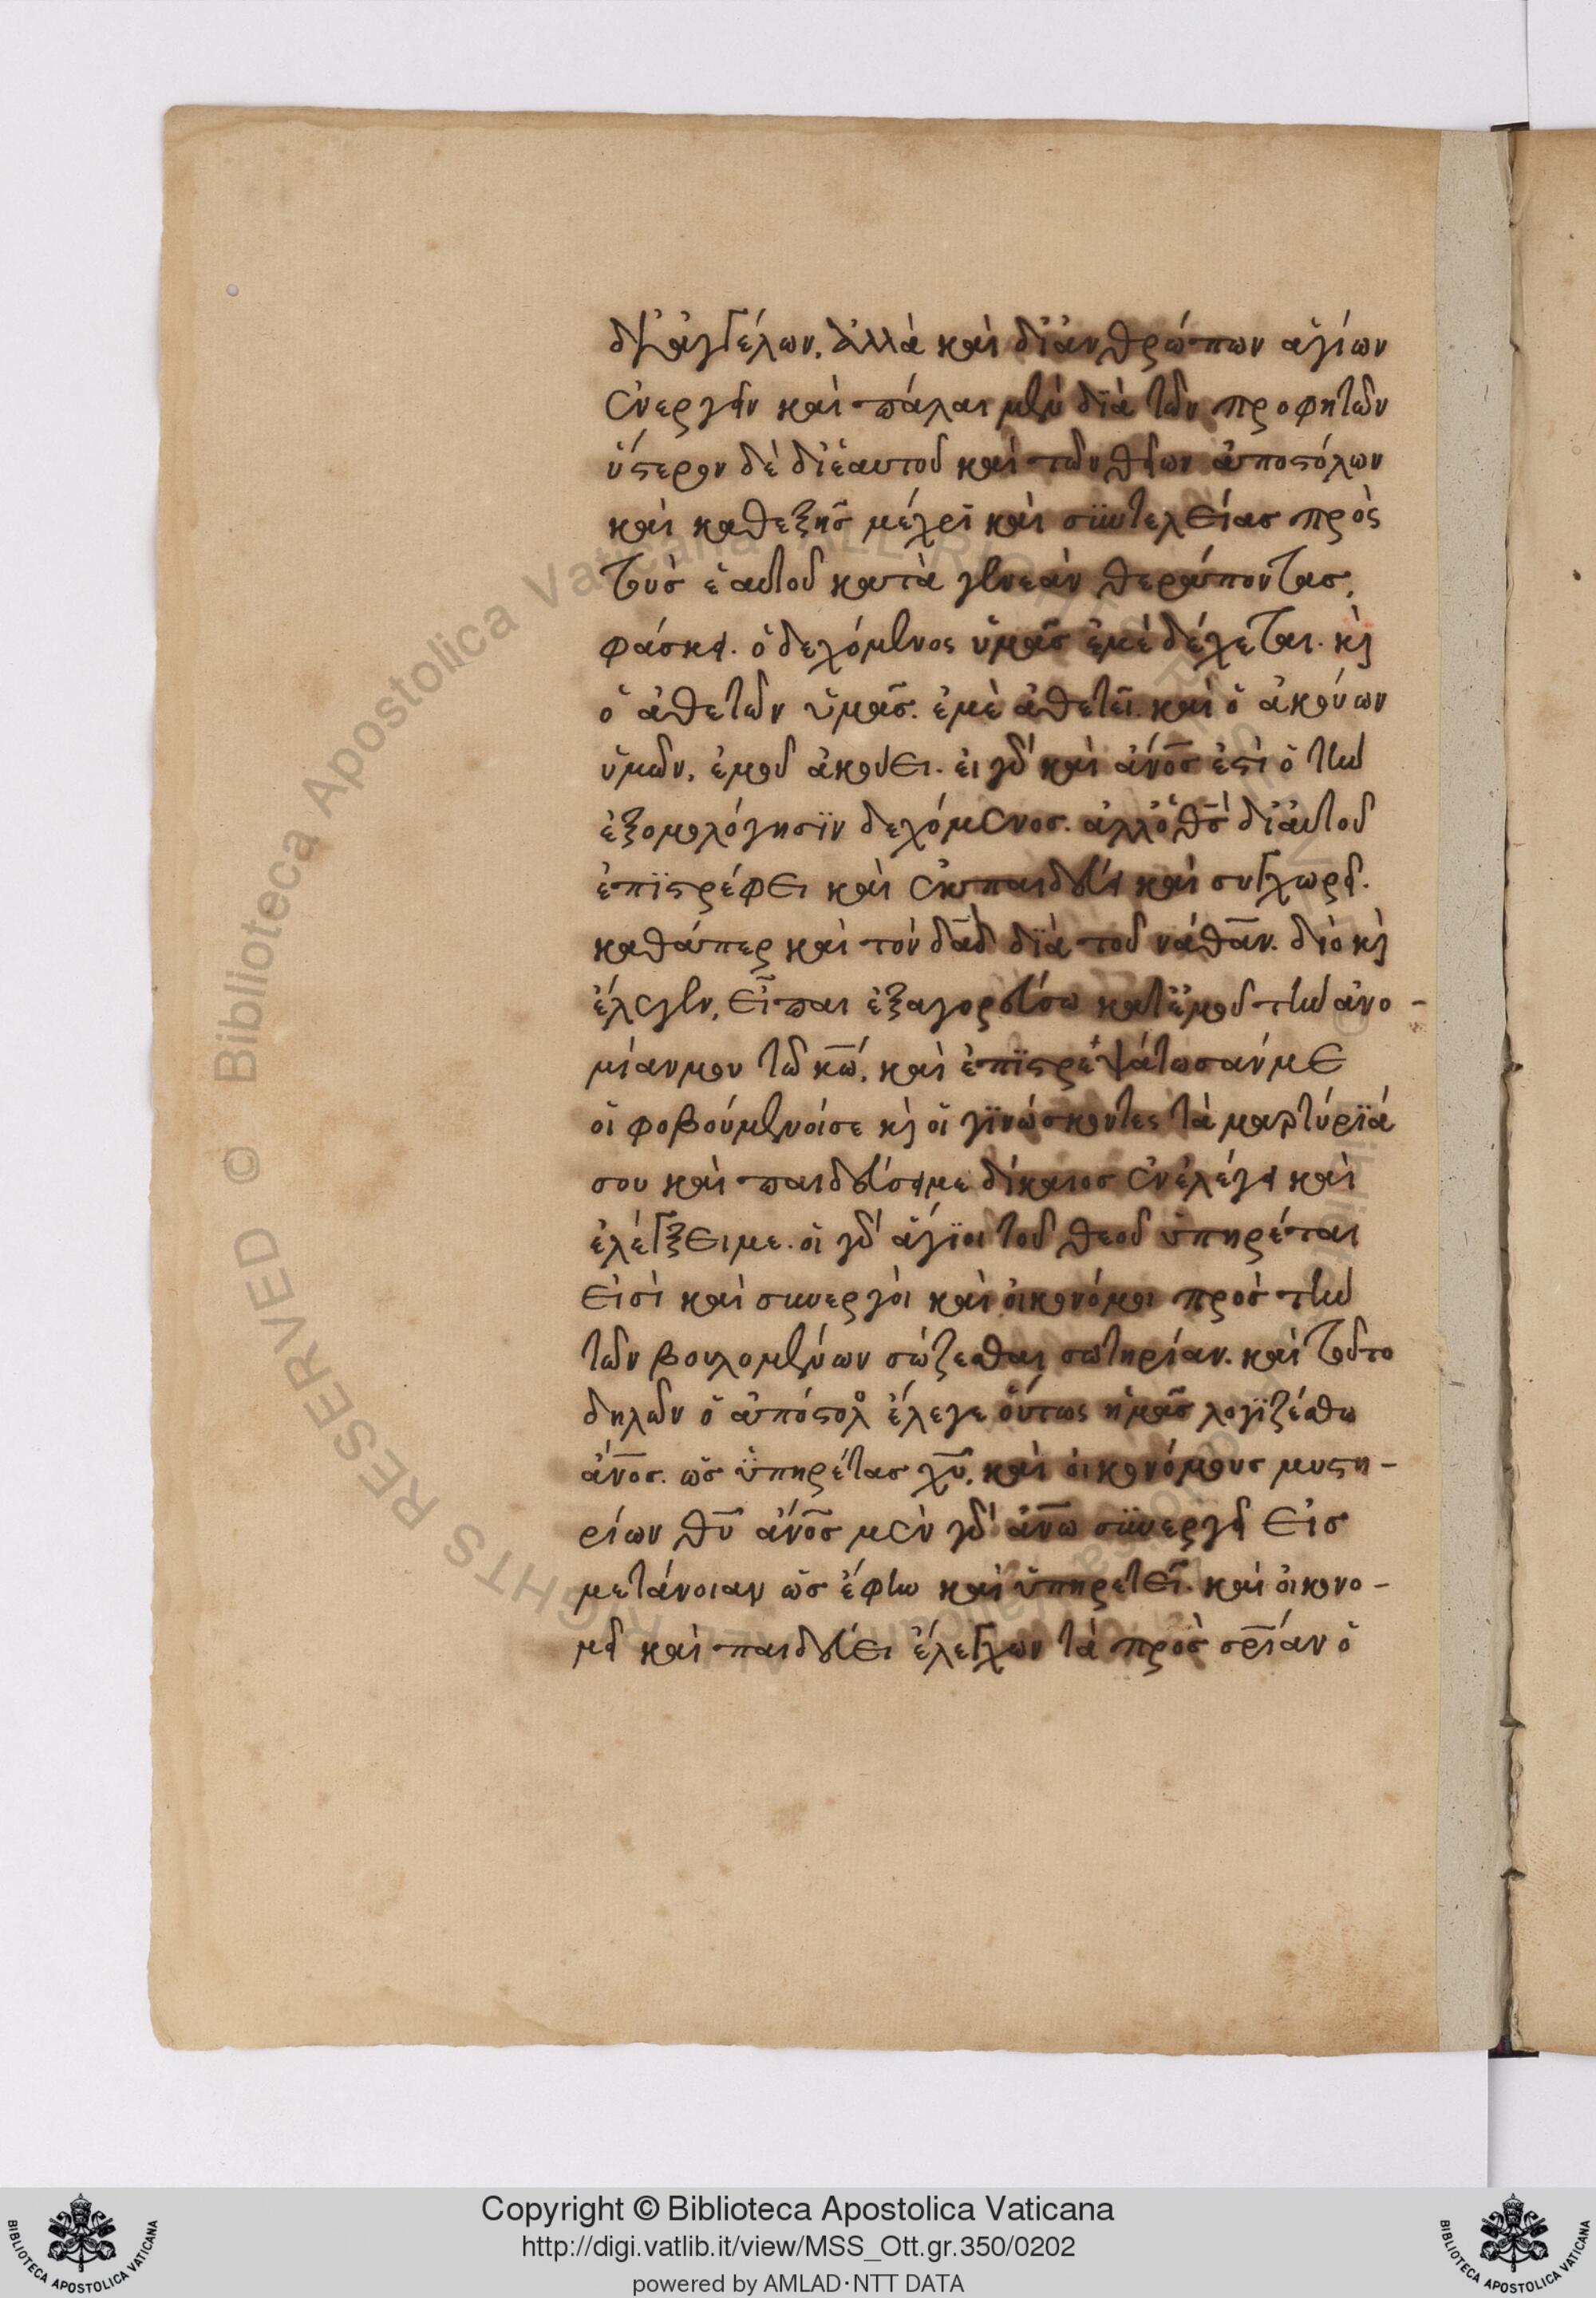 δι' ἀγγέλων. ἀλλὰ καὶ δι' ἀνθρώπων ἁγίων
ἐνεργῶν καὶ πάλαι μὲν διὰ τῶν προφητῶν
ὕστερον δὲ δι' ἑαυτοῦ καὶ τῶν θείων ἀποστόλων
καὶ καθεξῆς μέχρι καὶ συντελείας πρὸς
τοὺς ἑαυτοῦ κατὰ γενεὰν θεράποντας,
φάσκει. ὁ δεχόμενος ὑμᾶς ἐμὲ δέχεται. κὶ
ὁ ἀθετῶν ὑμᾶς. ἐμὲ ἀθετεῖ. καὶ ὁ ἀκούων
ὑμῶν, ἐμοῦ ἀκούει. εἰ γὰρ καὶ ἄνος ἐστὶ ὁ τὴν
ἐξομολόγησιν δεχόμενος. ἀλλ' ὁ θς δι' αὐτοῦ
ἐπιστρέφει καὶ ἐκπαιδεύει καὶ συγχωρεῖ.
καθάπερ καὶ τὸν δαδ διὰ τοῦ νάθαν. διὸ κὶ
ἔλεγεν, εἶπα ἐξαγορεύσω κατ' ἐμοῦ τὴν ἀνο-
μίαν μου τῷ κω, καὶ ἐπιστρεψάτωσάν με
οἱ φοβούμενοί σε κὶ οἱ γινώσκοντες τὰ μαρτύριά
σου καὶ παιδεύσει με δίκαιος ἐν ἐλέει καὶ
ἐλέγξει με. οἱ γὰρ ἅγιοι τοῦ θεοῦ ὑπηρέται
εἰσὶ καὶ συνεργοὶ καὶ οἰκονόμοι πρὸς τὴν
τῶν βουλομένων σώζεσθαι σωτηρίαν. καὶ τοῦτο
δηλῶν ὁ ἀπόστολ ἔλεγε οὕτως ἡμᾶς λογιζέσθω
ἄνος. ὡς ὑπηρέτας χυ, καὶ οἰκονόμους μυστη-
ρίων θυ ἄνος μὲν γὰρ ἀνω συνεργεῖ εἰς
μετάνοιαν ὡς ἔφην καὶ ὑπηρετεῖ. καὶ οἰκονο-
μεῖ καὶ παιδεύει ἐλέγχων τὰ πρὸς σριαν ὁ
Copyright © Biblioteca Apostolica Vaticana
http://digi.vatlib.it/view/MSS_Ott.gr.350/0202
powered by AMLAD·NTT DATA
BIBLIOTECA APOSTOLICA VATICANA
BIBLIOTECA APOSTOLICA VATICANA